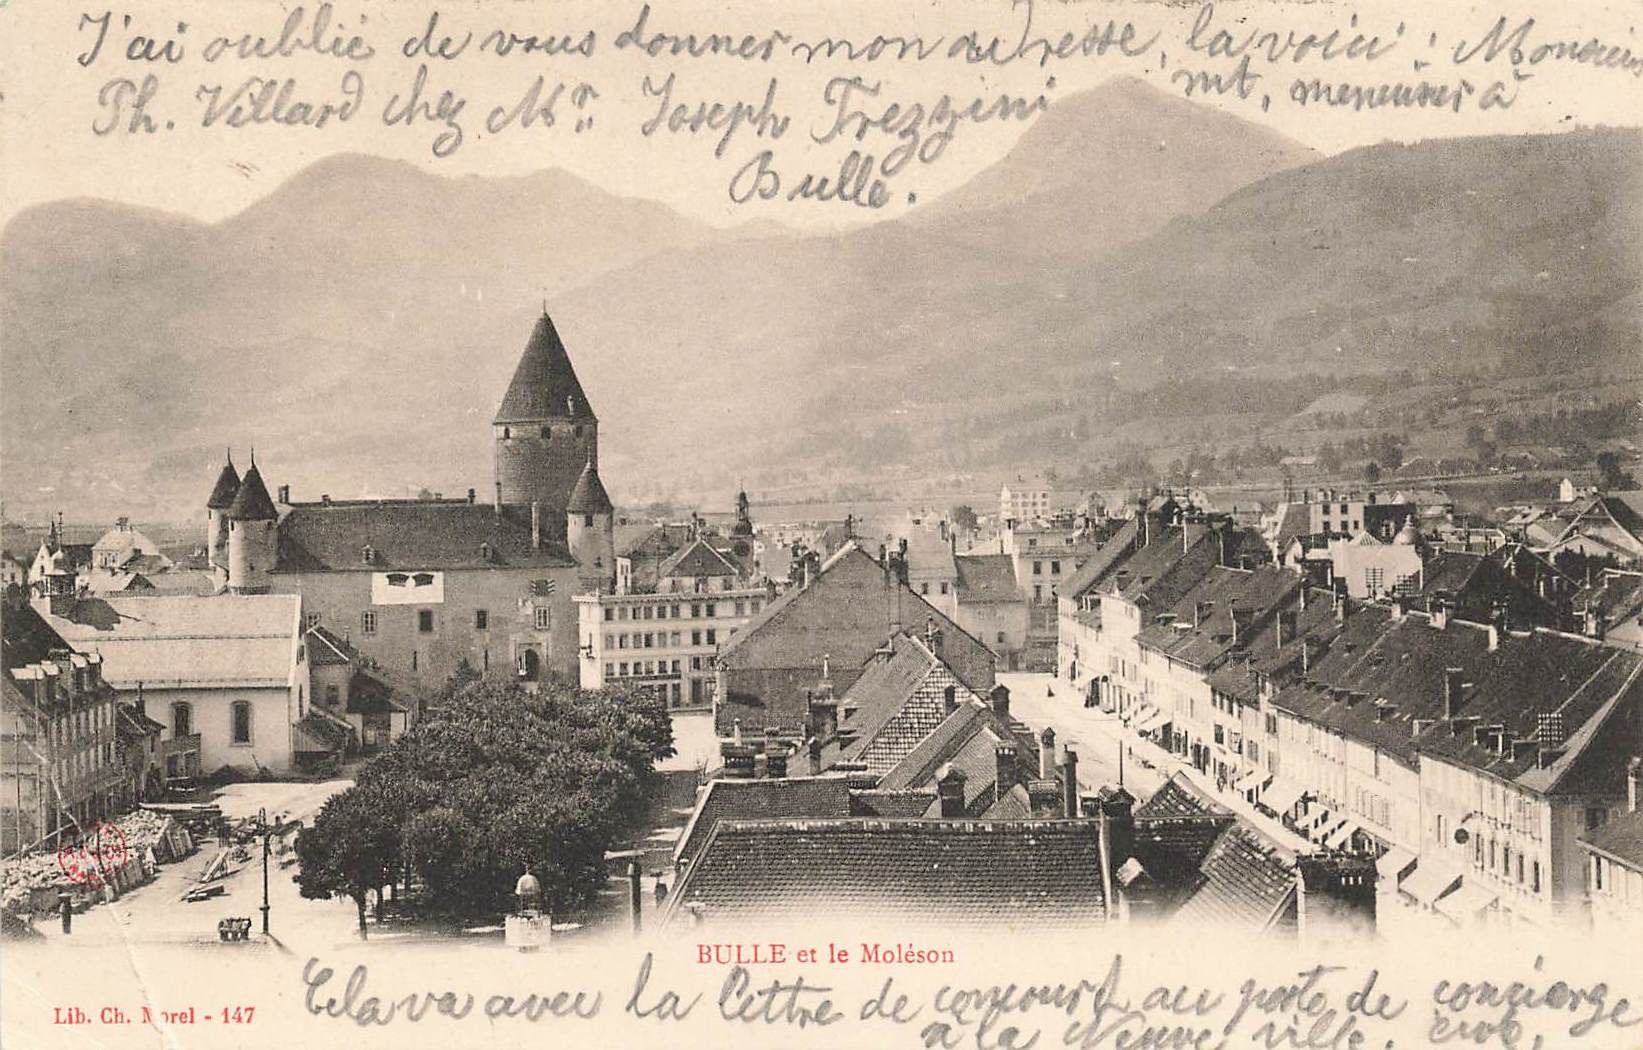 J'ai oublié de vous donner mon adresse, la voici : Monsieur
Ph. Villard chez Mr. Joseph Frezzini mt, menuisier à
Bulle.
BULLE et le Moléson
Lib. Ch. Morel - 147
Cela va avec la lettre de concours au poste de concierge
à la Neuve ville.